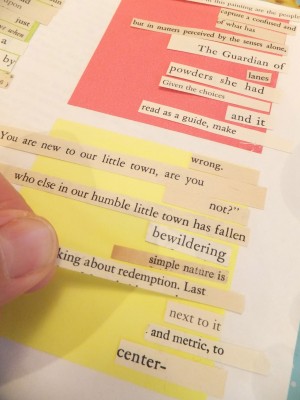 in this painting are the people
capture a confused and
of what has
but in matters perceived by the senses alone,
The Guardian of
lanes
powders she had
Given the choices
and it
read as a guide, make
wrong.
You are new to our little town, are you
not?"
who else in our humble little town has fallen
bewildering
simple nature is
king about redemption. Last
next to it
and metric, to
center-
just
a
by